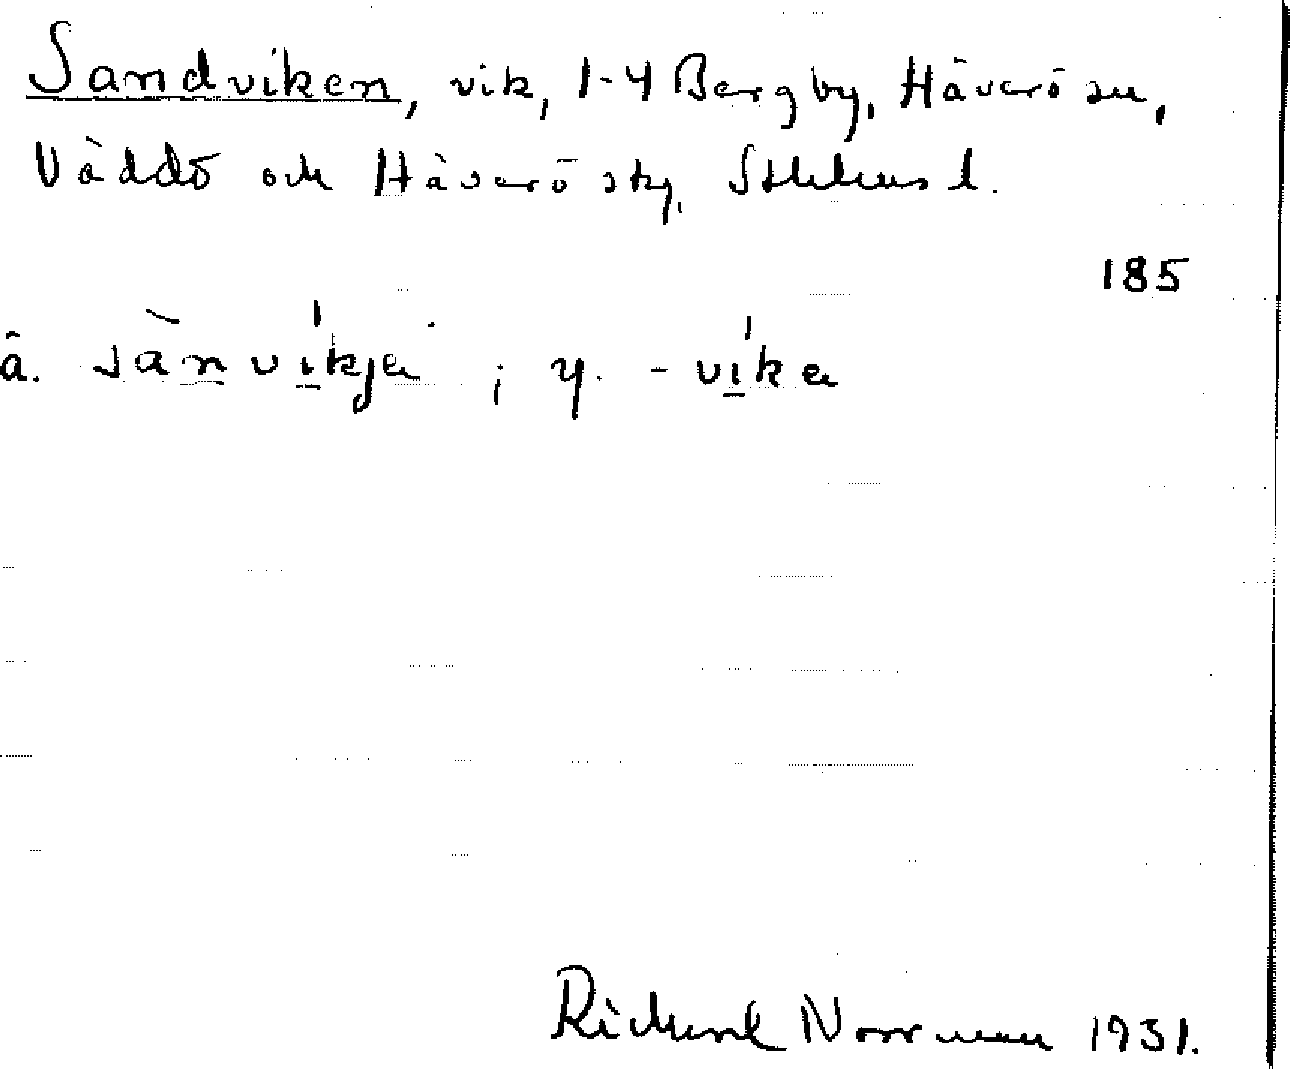 Sandviken, vik, 1-4 Bergby, Häverö sn,
Väddö och Häverö sky, Sthlms l.
185
ä. sànvíkja ; y. -víka
Richard Norrman 1931.